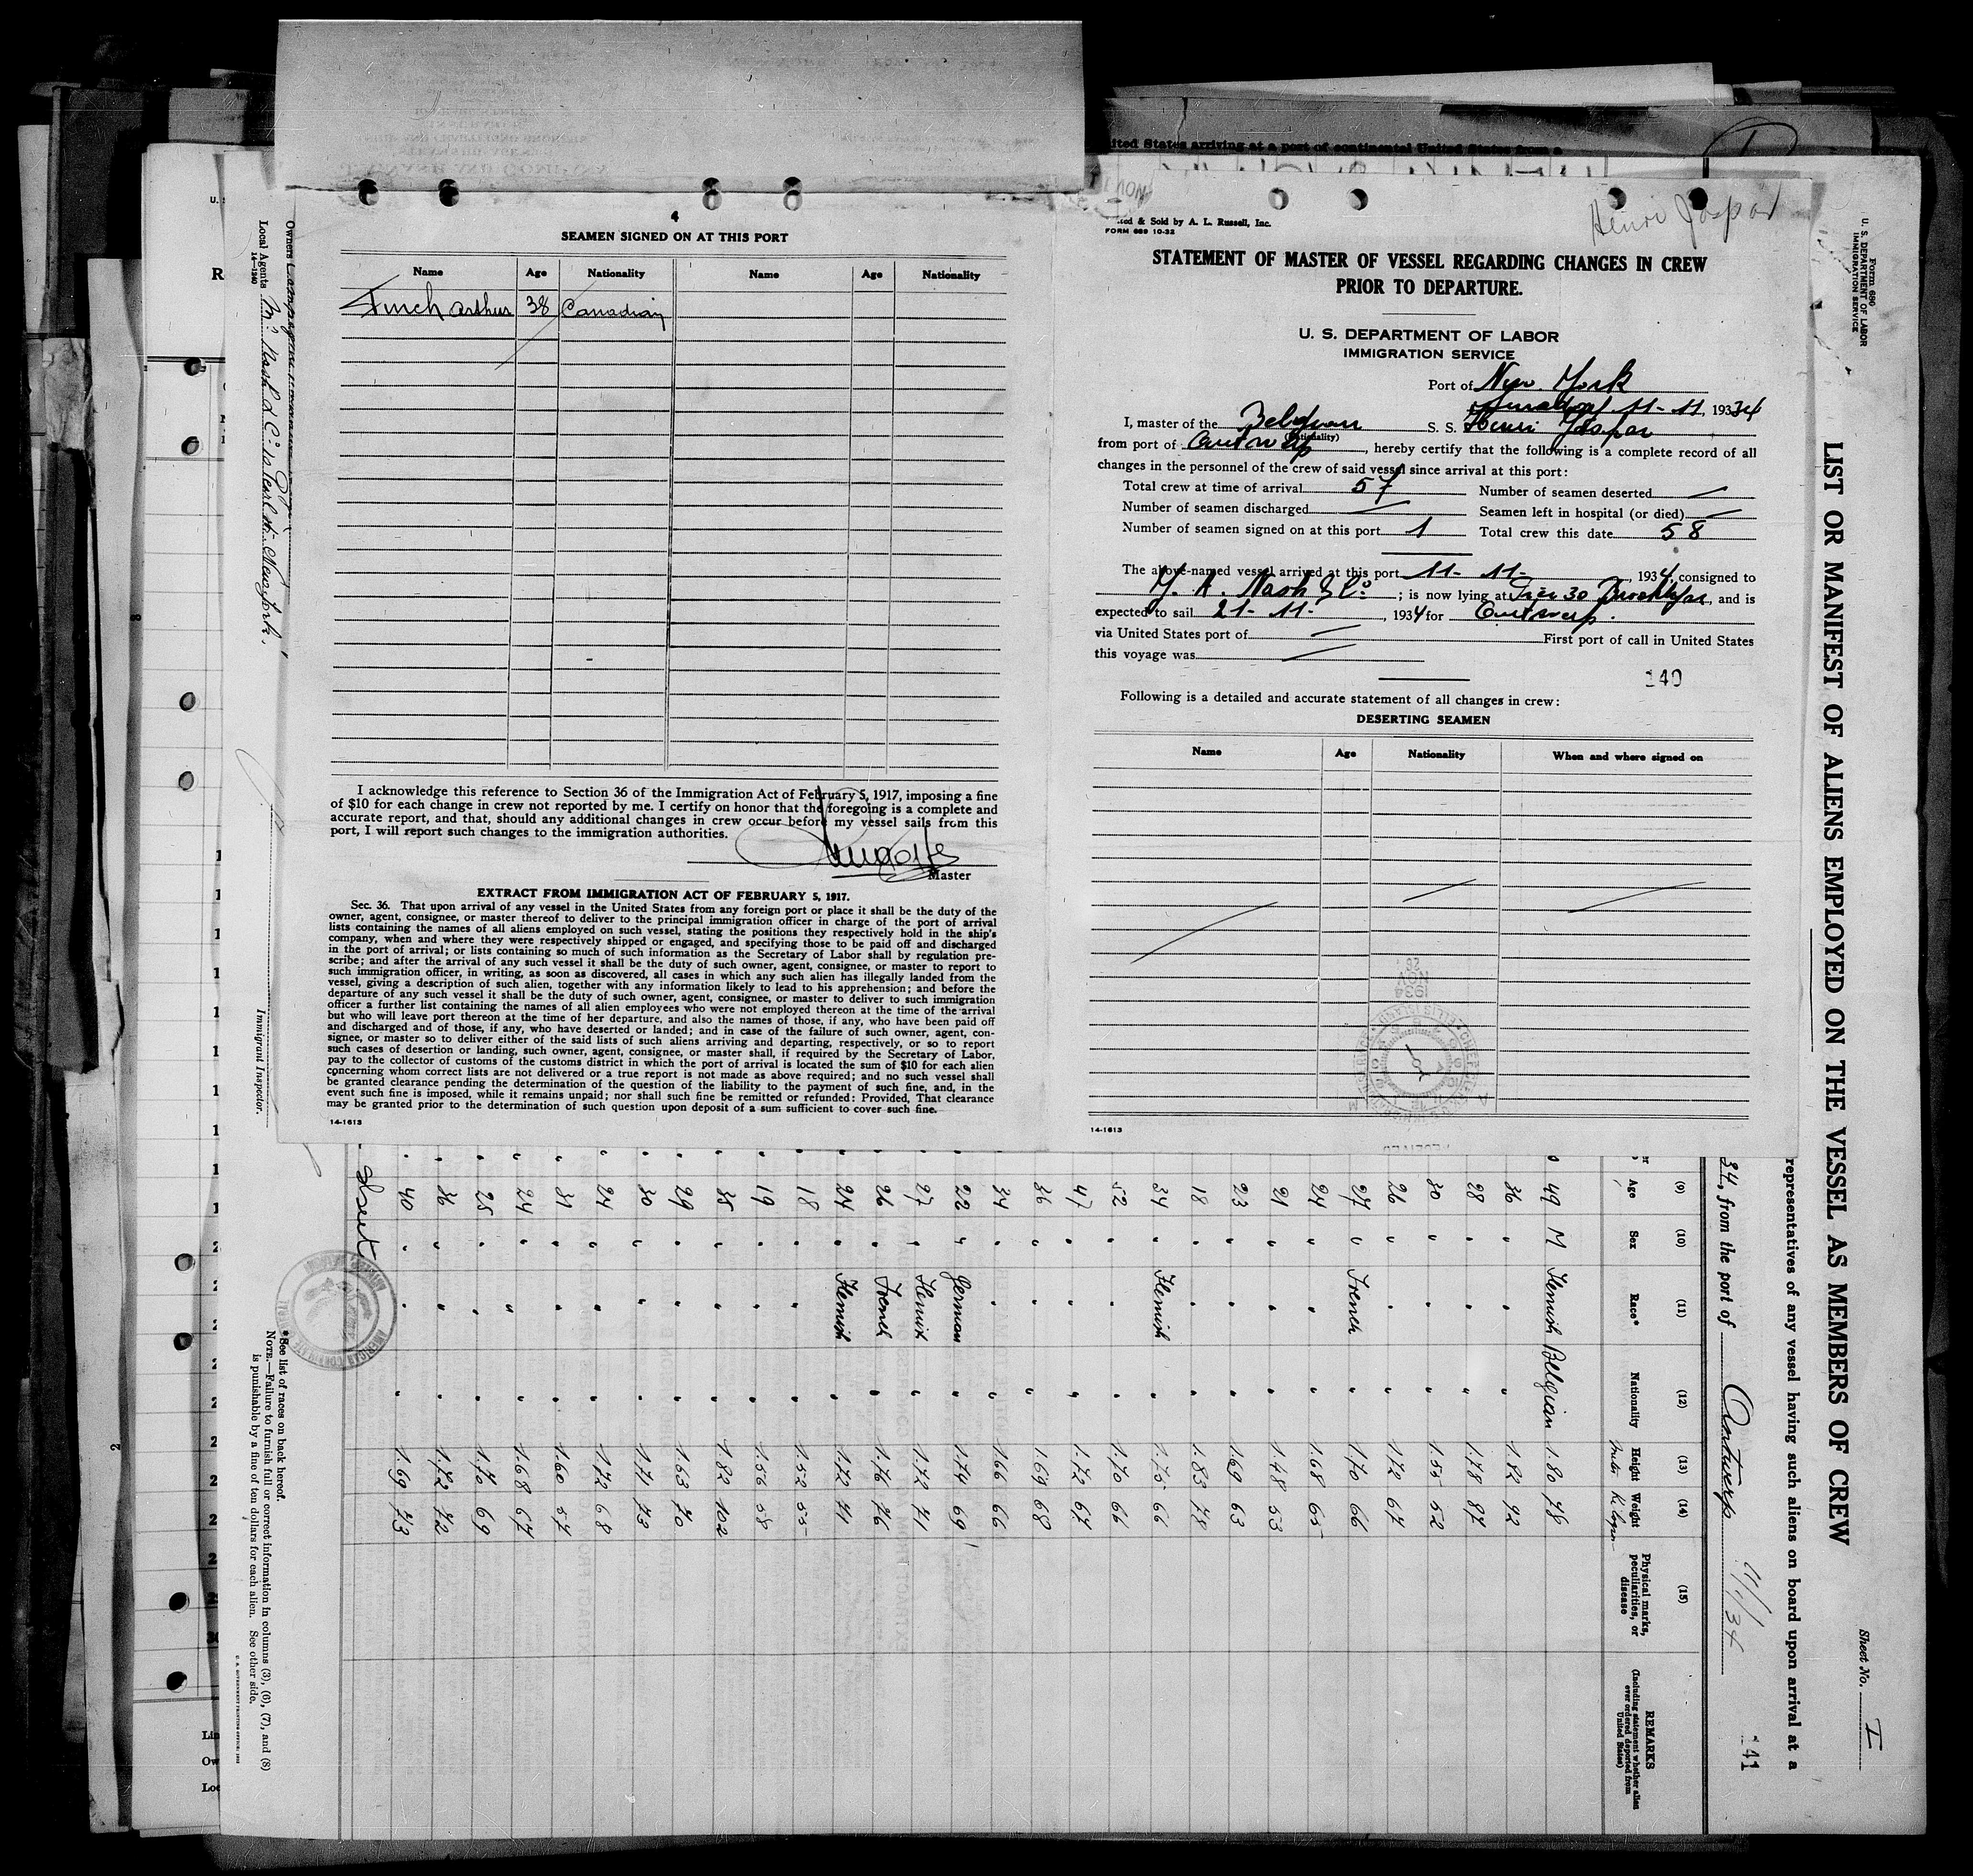 4
SEAMEN SIGNED ON AT THIS PORT
Name Age Nationality Name Age Nationality
Finch Arthur 38 Canadian
I acknowledge this reference to Section 36 of the Immigration Act of February 5, 1917, imposing a fine
of $10 for each change in crew not reported by me. I certify on honor that the foregoing is a complete and
accurate report, and that, should any additional changes in crew occur before my vessel sails from this
port, I will report such changes to the immigration authorities.
Master
EXTRACT FROM IMMIGRATION ACT OF FEBRUARY 5, 1917.
Sec. 36. That upon arrival of any vessel in the United States from any foreign port or place it shall be the duty of the
owner, agent, consignee, or master thereof to deliver to the principal immigration officer in charge of the port of arrival
lists containing the names of all aliens employed on such vessel, stating the positions they respectively hold in the ship's
company, when and where they were respectively shipped or engaged, and specifying those to be paid off and discharged
in the port of arrival; or lists containing so much of such information as the Secretary of Labor shall by regulation pre-
scribe; and after the arrival of any such vessel it shall be the duty of such owner, agent, consignee, or master to report to
such immigration officer, in writing, as soon as discovered, all cases in which any such alien has illegally landed from the
vessel, giving a description of such alien, together with any information likely to lead to his apprehension; and before the
departure of any such vessel it shall be the duty of such owner, agent, consignee, or master to deliver to such immigration
officer a further list containing the names of all alien employees who were not employed thereon at the time of the arrival
but who will leave port thereon at the time of her departure, and also the names of those, if any, who have been paid off
and discharged and of those, if any, who have deserted or landed; and in case of the failure of such owner, agent, con-
signee, or master so to deliver either of the said lists of such aliens arriving and departing, respectively, or so to report
such cases of desertion or landing, such owner, agent, consignee, or master shall, if required by the Secretary of Labor,
pay to the collector of customs of the customs district in which the port of arrival is located the sum of $10 for each alien
concerning whom correct lists are not delivered or a true report is not made as above required; and no such vessel shall
be granted clearance pending the determination of the question of the liability to the payment of such fine, and, in the
event such fine is imposed, while it remains unpaid; nor shall such fine be remitted or refunded: Provided, That clearance
may be granted prior to the determination of such question upon deposit of a sum sufficient to cover such fine.
14-1613
ited States arriving at a port of continental United States from a
& Sold by A. L. Russell, Inc.
FORM 689 10-32
Henri Jaspar
STATEMENT OF MASTER OF VESSEL REGARDING CHANGES IN CREW
PRIOR TO DEPARTURE.
U. S. DEPARTMENT OF LABOR
IMMIGRATION SERVICE
Port of New York
11-11, 1934
I, master of the Belgian S. S. Henri Jaspar
(Nationality)
from port of Antwerp, hereby certify that the following is a complete record of all
changes in the personnel of the crew of said vessel since arrival at this port:
Total crew at time of arrival 57 Number of seamen deserted —
Number of seamen discharged — Seamen left in hospital (or died) —
Number of seamen signed on at this port 1 Total crew this date 58
The above-named vessel arrived at this port 11-11-, 1934, consigned to
Nash & Co; is now lying at Pier 30 Brooklyn, and is
expected to sail 21-11-, 1934 for Antwerp.
via United States port of — First port of call in United States
this voyage was —
140
Following is a detailed and accurate statement of all changes in crew:
DESERTING SEAMEN
Name Age Nationality When and where signed on
1934
NOV
26
14-1613
Form 680
U. S. DEPARTMENT OF LABOR
IMMIGRATION SERVICE
Sheet No. I
LIST OR MANIFEST OF ALIENS EMPLOYED ON THE VESSEL AS MEMBERS OF CREW
representatives of any vessel having such aliens on board upon arrival at a
34, from the port of Antwerp 11/11/34
141
(9) (10) (11) (12) (13) (14) (15)
Age Sex Race* Nationality Height Weight Physical marks, peculiarities, or disease REMARKS
(Including statement whether alien ever ordered deported from United States)
49 M Flemish Belgian 1.80 78
36 " " " 1.82 92
28 " " " 1.78 87
30 " " " 1.55 52
26 " " " 1.72 67
27 " French " 1.70 66
24 " " " 1.68 65
21 " " " 1.48 53
23 " " " 1.69 63
18 " " " 1.83 78
34 " Flemish " 1.75 66
52 " " " 1.70 66
47 " " " 1.72 67
36 " " " 1.69 68
34 " " " 1.66 66
22 " German " 1.74 69
27 " Flemish " 1.72 71
26 " French " 1.76 76
24 " Flemish " 1.72 71
18 " " " 1.52 55
19 " " " 1.56 58
35 " " " 1.82 102
29 " " " 1.63 70
30 " " " 1.71 73
24 " " " 1.72 68
31 " " " 1.60 57
24 " " " 1.68 67
25 " " " 1.70 69
36 " " " 1.72 72
40 " " " 1.69 73
*See list of races on back hereof.
NOTE.—Failure to furnish full or correct information in columns (3), (6), (7), and (8)
is punishable by a fine of ten dollars for each alien. See other side.
Owners
Local Agents Nash & Co New York.
14—1240
Immigrant Inspector.